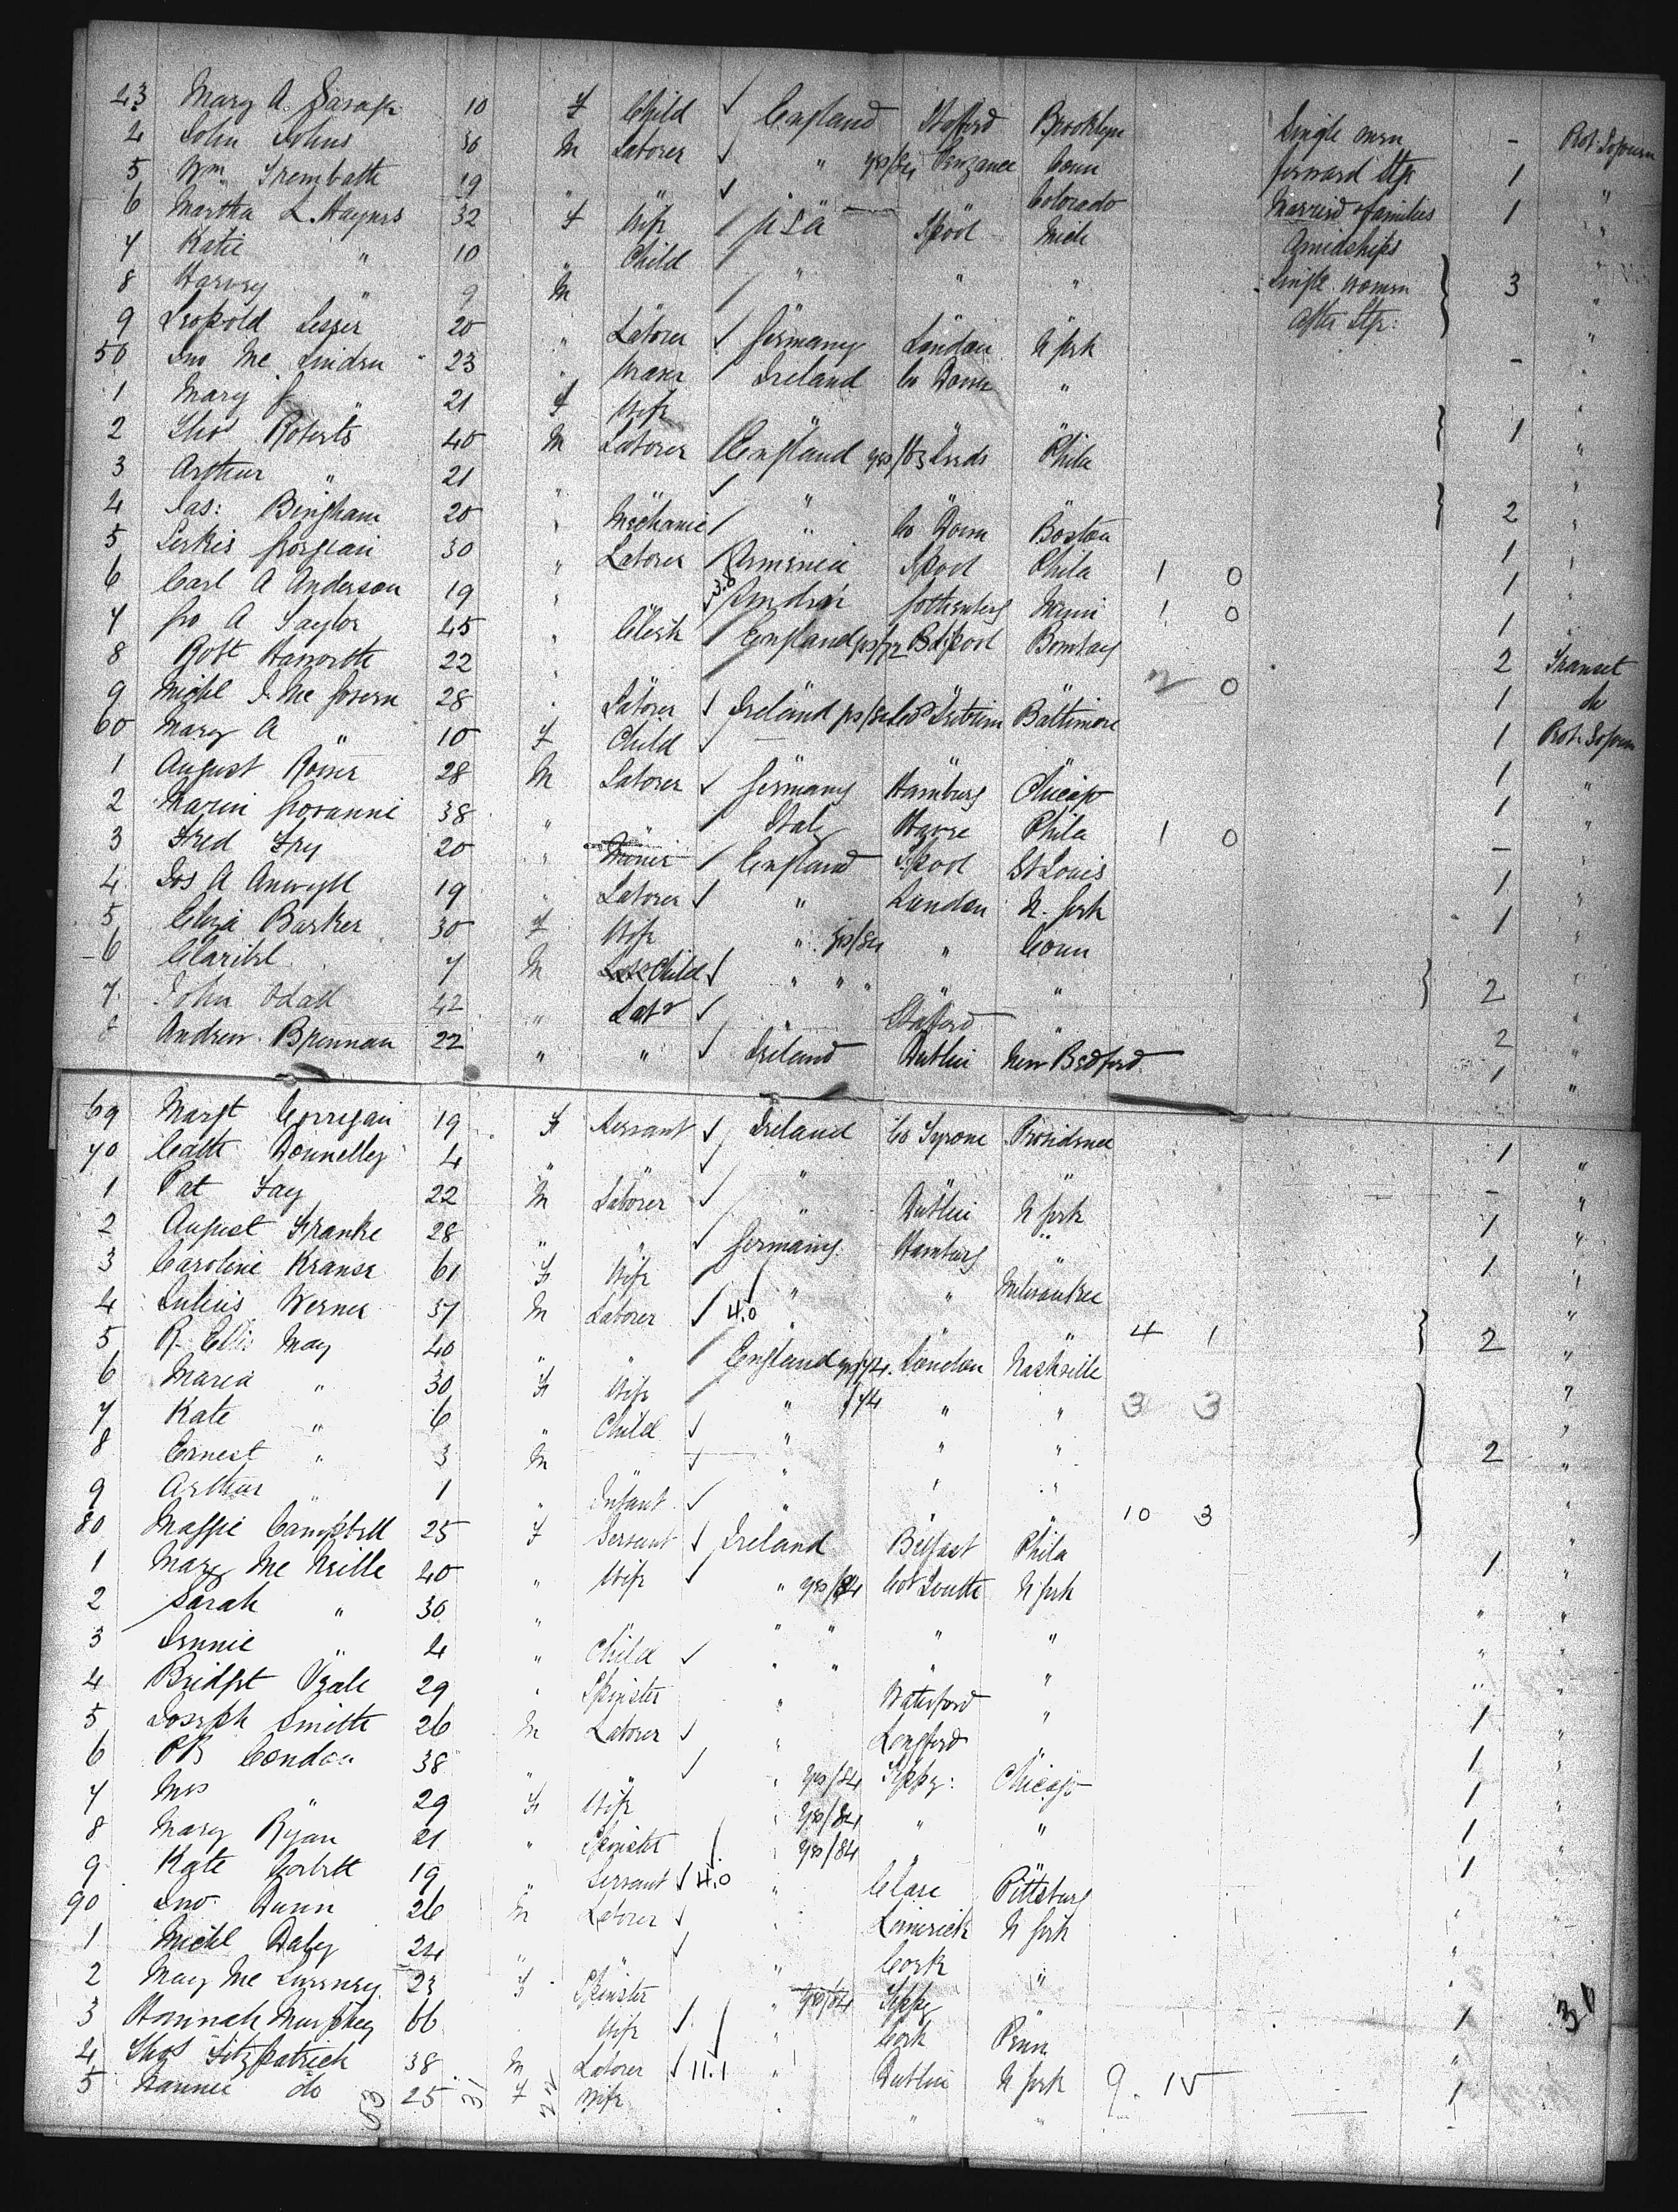 23 Mary A. 10 F Child ✓ England Stafford Brooklyn Single men - Prot. Sojourn
4 John Johns 36 M Laborer ✓ " yes/84 Penzance Conn forward Str 1 "
5 Wm Trembath 19 " " ✓ Colorado Married & families 1 "
6 Martha L. Haynes 32 F Wife / U S A L'pool Mich Amidships
7 Katie " 10 " Child / " " " Single women 3 "
8 Harvey " 9 M " after Str:
9 Leopold Lesser 20 " Laborer ✓ Germany London N York -
50 Jno Mc 23 " / Ireland Co Down "
1 Mary J " 21 F Wife " " " 1
2 Thos Roberts 40 M Laborer / England yes/83 Leeds Phila
3 Arthur " 21 " " ✓ " " " 2
4 Jas: Bingham 20 " Mechanic / " Co Down Boston 1
5 30 " Laborer / Armenia L'pool Phila 1 0 1
6 Carl A Anderson 19 " " 3.0 Gothenberg Minn 1 0 1
7 Geo A Taylor 45 " Clerk / England yes/72 L'pool Bombay 2 Transet
8 Robt Haworth 22 " " " " " 2 0 1 do
9 Michl J. Mc Govern 28 " Laborer ✓ Ireland Leitrim Baltimore 1 Prot. Sojourn
60 Mary A " 10 F Child ✓ 1 "
1 August 28 M Laborer ✓ Germany Hamburg Chicago 1 "
2 Giovanni 38 " " / Italy Havre Phila 1 0 -
3 Fred Fry 20 " / England L'pool St Louis 1
4 Jos A Anwyll 19 " Laborer ✓ " London N. York 1
5 Eliza Barker 30 F Wife " yes/84 " Conn
6 Claribel 7 M Child ✓ " " " " 2
7 John Odall 42 " Labr ✓ " Stafford " 2
8 Andrew Brennan 22 " " ✓ Ireland Dublin New Bedford 1 "
69 Margt Corrigan 19 F Servant ✓ Ireland Co Tyrone Providence 1 "
70 Cath Donnelly 4 " " ✓ " " " - "
1 Pat Fay 22 M Laborer ✓ " Dublin N York 1 "
2 August Franke 28 " " ✓ Germany Hamburg " 1 "
3 Caroline Kranse 61 F Wife / " " Milwaukee
4 Julius Werner 37 M Laborer ✓ 4.0 " " " 4 1 2 "
5 R. Ellis May 40 " " / England yes/74 London Nashville
6 Maria " 30 F Wife / " /74 " " 3 3
7 Kate " 6 " Child ✓ " " " 2 "
8 Ernest " 3 M " ✓ " " "
9 Arthur " 1 " Infant ✓ " " " 10 3
80 Maggie Campbell 25 F Servant ✓ Ireland Belfast Phila 1 "
1 Mary Mc Neille 40 " Wife ✓ " yes/84 Co Louth N York " "
2 Sarah " 30 " " " " " " " "
3 Jennie " 4 " Child ✓ " " " " " "
4 Bridget 29 " Spinster " Waterford " 1 "
5 Joseph Smith 26 M Laborer ✓ " Longford " 1 "
6 P B Condon 38 " " ✓ " yes/84 Tippy: Chicago 1 "
7 Mrs " 29 F Wife " yes/84 " " 1 "
8 Mary Ryan 21 " Spinster / " yes/84 " " 1 "
9 Kate Corbett 19 " Servant ✓ 4.0 " Clare Pittsburg "
90 Jno Dunn 26 M Laborer ✓ " Limerick N York "
1 Michl Daly 24 " " ✓ " Cork " "
2 Mary Mc 23 F Spinster " yes/84 Tippy " 1
3 Hannah Murphey 66 Wife ✓ " Cork Penn "
4 Thos Fitzpatrick 38 M Laborer ✓ 11.1 " Dublin N York 9. 15 1
5 Hannie do 25 F Wife " " " 1